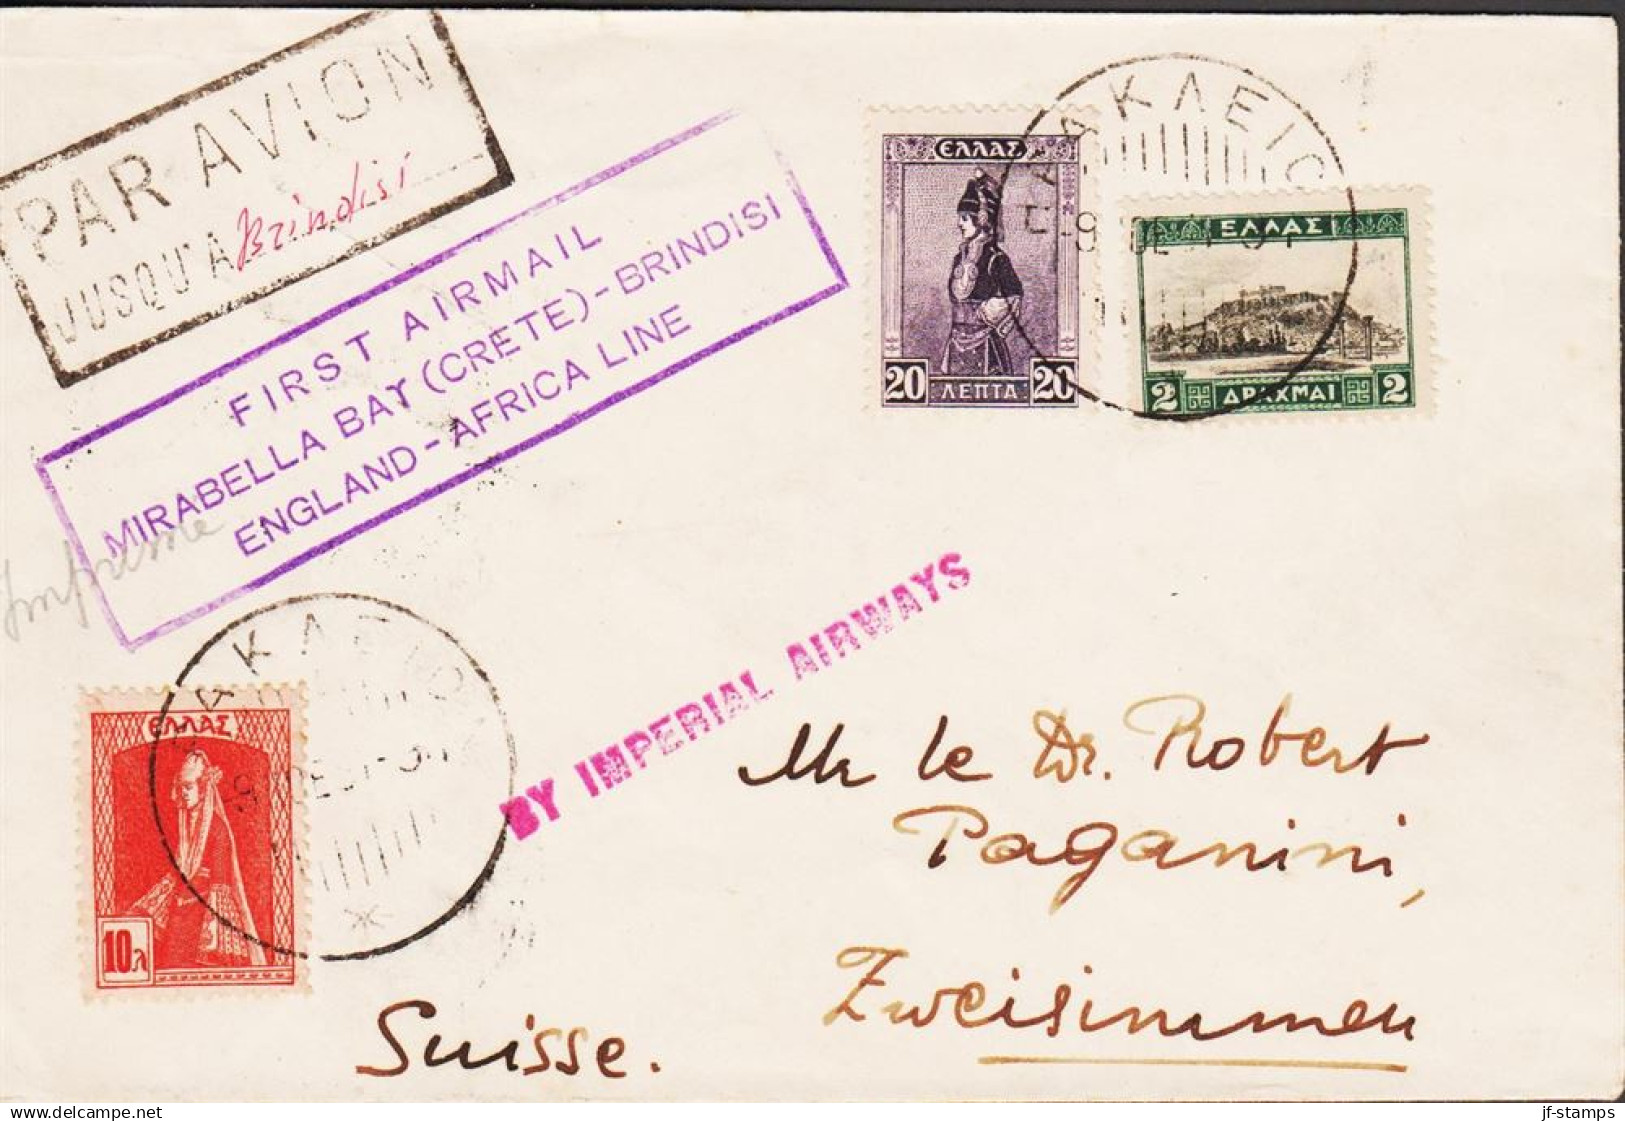 PAR AVION
JUSQU'A Brindisi
FIRST AIRMAIL
MIRABELLA BAY (CRETE)-BRINDISI
ENGLAND-AFRICA LINE
Imprime
ΕΛΛΑΣ
20 ΛΕΠΤΑ 20
ΑΚΛΕΙΟ
ΕΛΛΑΣ
2 ΔΡΑΧΜΑΙ 2
ΑΚΛΕΙΟ
ΕΛΛΑΣ
10 λ
BY IMPERIAL AIRWAYS
Mr le Dr. Robert
Paganini,
Zweisimmen
Suisse.
delcampe.net
jf-stamps